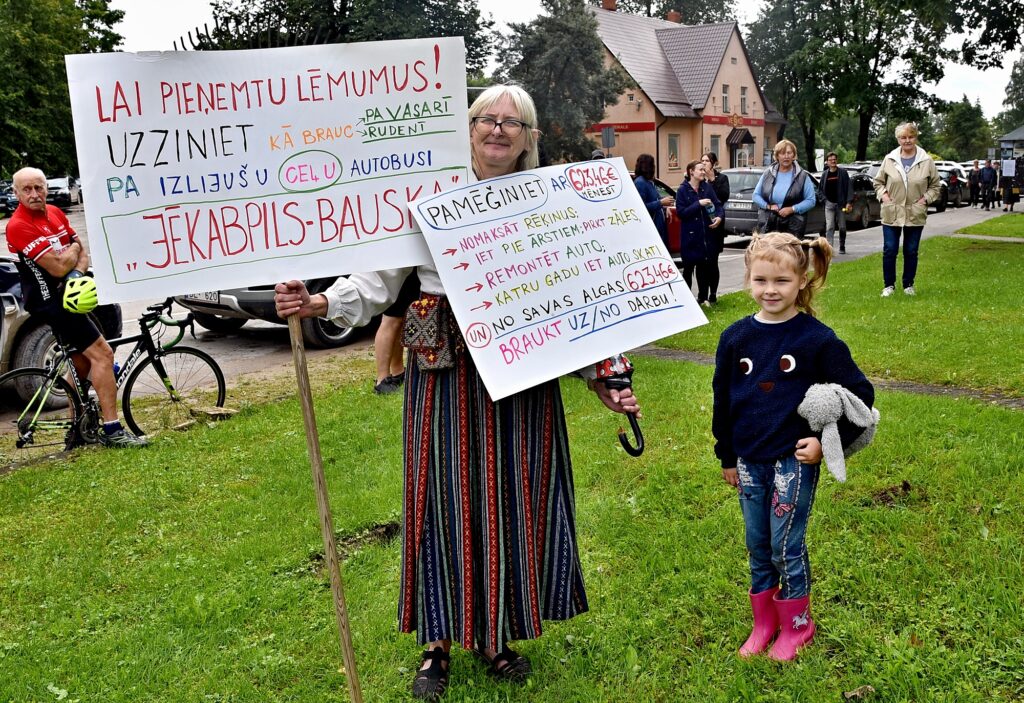 LAI PIEŅEMTU LĒMUMUS!
UZZINIET KĀ BRAUC PAVASARĪ
RUDENĪ
PA IZĻIJUŠU CEĻU AUTOBUSI
"JĒKABPILS-BAUSKA"
PAMĒĢINIET AR 623.46€
MĒNESĪ
→ NOMAKSĀT RĒĶINUS;
→ IET PIE ĀRSTIEM; PIRKT ZĀLES,
→ REMONTĒT AUTO;
→ KATRU GADU IET AUTO SKATI
UN NO SAVAS ALGAS 623.46€
BRAUKT UZ/NO DARBU!